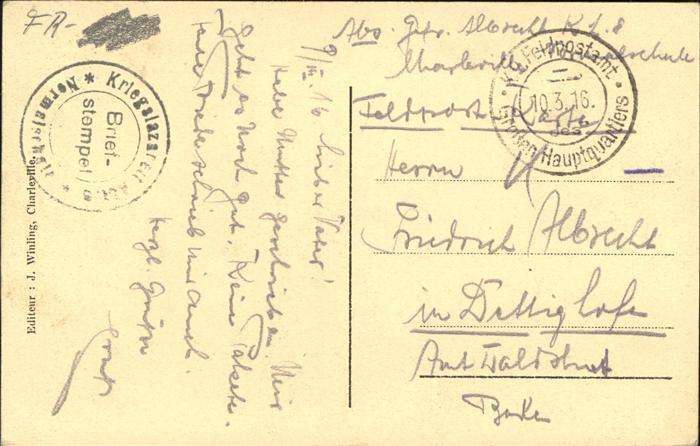 FR-
Kriegslazarett
Normalschule
Brief-
stempel
9/III. 16 Lieber Vater!
Habe Mutter geschrieben. Mir
geht es noch gut. Keine Pakete.
Frieder schrieb mir auch.
Herzl. Grüße
Ernst
Editeur : J. Winling, Charleville.
Abs. Gefr. Albrecht K.L.8
Charleville Normalschule
K.D. Feldpostamt
10.3.16.
des
Großen Hauptquartiers
Feldpost Karte
Herrn
Friedrich Albrecht
in Dettighofen
Amt Waldshut
Baden